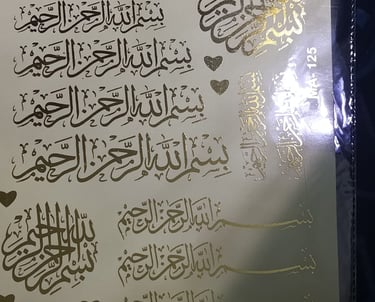 بسم الله الرحمن الرحيم
بسم الله الرحمن الرحيم
بسم الله الرحمن الرحيم
بسم الله الرحمن الرحيم
بسم الله الرحمن الرحيم
بسم الله الرحمن الرحيم
بسم الله الرحمن الرحيم
بسم الله الرحمن الرحيم
بسم الله الرحمن الرحيم